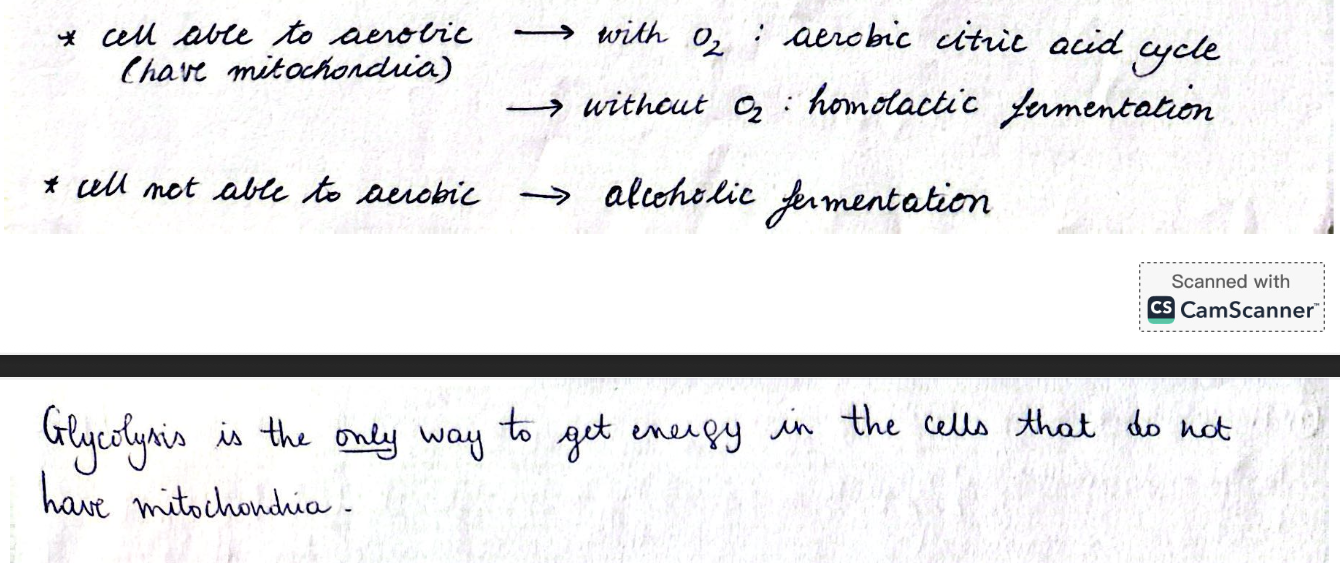 * cell able to aerobic → with O₂ : aerobic citric acid cycle
(have mitochondria)
→ without O₂ : homolactic fermentation
* cell not able to aerobic → alcoholic fermentation
Scanned with
CS CamScanner™
Glycolysis is the only way to get energy in the cells that do not
have mitochondria.